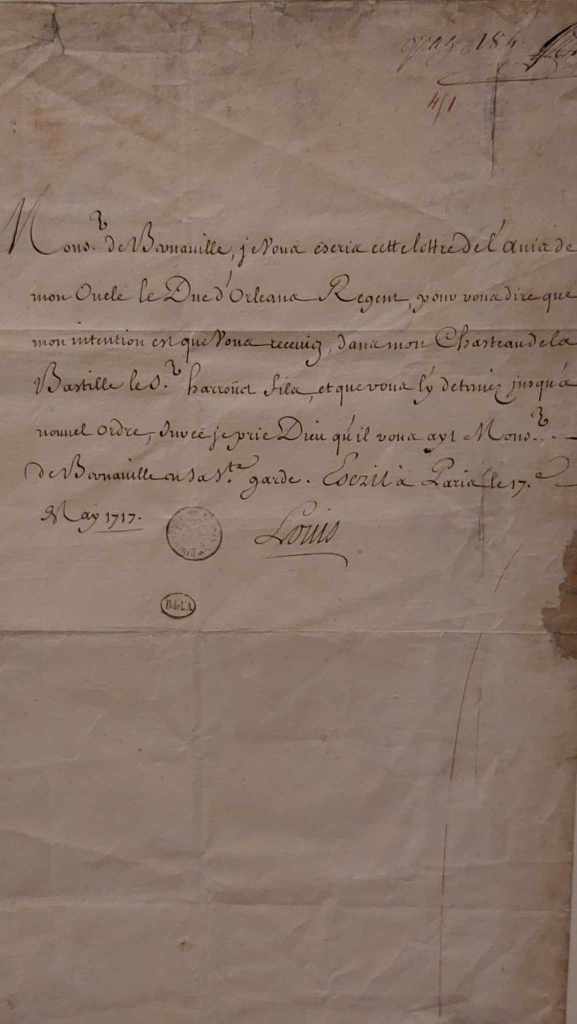 184
Mons.r de Bernaville, je vous escris cette lettre de l'avis de
mon Oncle le Duc d'Orleans Regent, pour vous dire que
mon intention est que vous receviez, dans mon Chasteau de la
Bastille le S.r harroüet fils, et que vous l'y deteniez jusqu'à
nouvel ordre, Sur ce je prie Dieu qu'il vous ayt Mons.r
de Bernaville en sa S.te garde. Escrit à Paris le 17.e
May 1717.
Louis
B de l'A